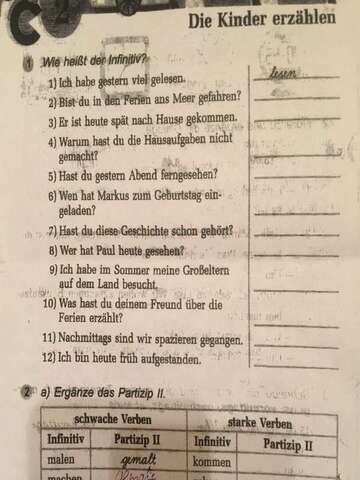 Die Kinder erzählen
1 Wie heißt der Infinitiv?
1) Ich habe gestern viel gelesen. lesen
2) Bist du in den Ferien ans Meer gefahren?
3) Er ist heute spät nach Hause gekommen.
4) Warum hast du die Hausaufgaben nicht
gemacht?
5) Hast du gestern Abend ferngesehen?
6) Wen hat Markus zum Geburtstag ein-
geladen?
7) Hast du diese Geschichte schon gehört?
8) Wer hat Paul heute gesehen?
9) Ich habe im Sommer meine Großeltern
auf dem Land besucht.
10) Was hast du deinem Freund über die
Ferien erzählt?
11) Nachmittags sind wir spazieren gegangen.
12) Ich bin heute früh aufgestanden.
2 a) Ergänze das Partizip II.
schwache Verben starke Verben
Infinitiv Partizip II Infinitiv Partizip II
malen gemalt kommen
machen